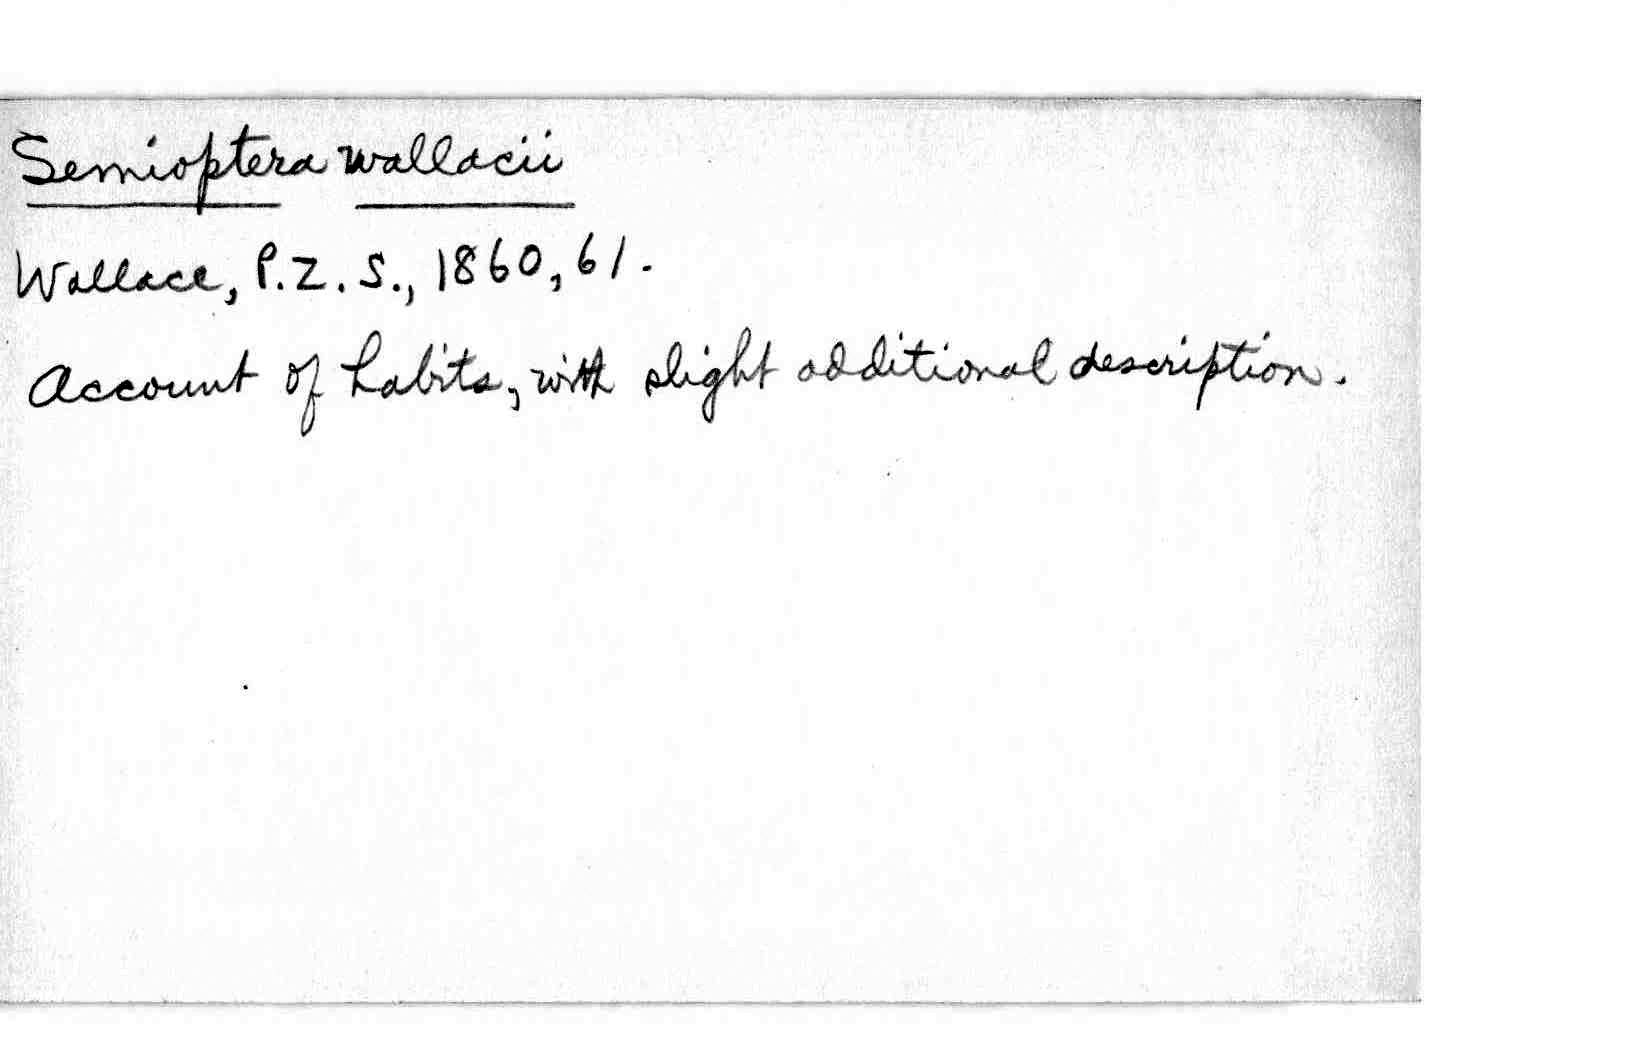 Semioptera wallacii
Wallace, P.Z.S., 1860, 61.
Account of habits, with slight additional description.